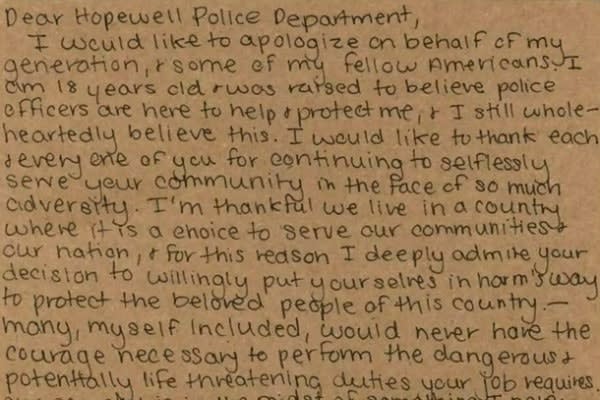 Dear Hopewell Police Department,
I would like to apologize on behalf of my
generation, & some of my fellow Americans. I
am 18 years old & was raised to believe police
officers are here to help & protect me, & I still whole-
heartedly believe this. I would like to thank each
& every one of you for continuing to selflessly
serve your community in the face of so much
adversity. I'm thankful we live in a country
where it is a choice to serve our communities &
our nation, & for this reason I deeply admire your
decision to willingly put yourselves in harm's way
to protect the beloved people of this country. —
many, myself included, would never have the
courage necessary to perform the dangerous &
potentially life threatening duties your job requires.